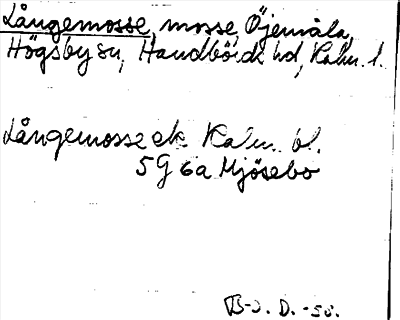 Långemosse, mosse, Öjemåla,
Högsby sn, Handbörds hd, Kalm. l.
Långemosse ek Kalm. bl.
5G 6a Mjösebo
B-J. D. -58.